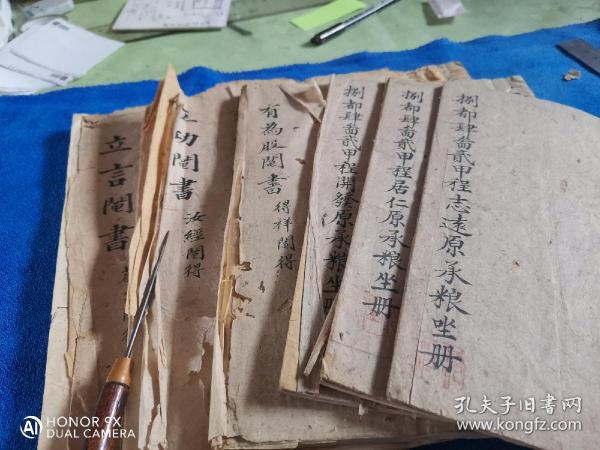 捌都肆啚貳甲程志遠原承粮坐册
捌都肆啚貳甲程居仁原承粮坐册
捌都肆啚貳甲程開發原承粮坐册
有為股鬮書
得祥鬮得
立功鬮書
汝經鬮得
立言鬮書
HONOR 9X
AI DUAL CAMERA
孔夫子旧书网
www.kongfz.com